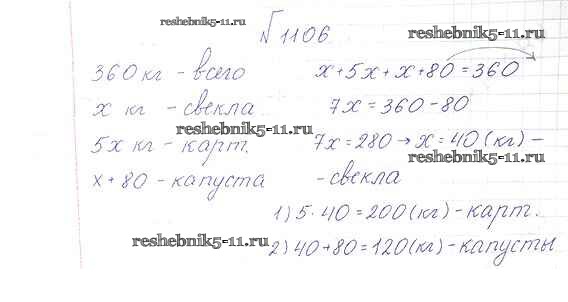 reshebnik5-11.ru
№1106
reshebnik5-11.ru
360 кг - всего
x+5x+x+80=360
x кг - свекла
7x=360-80
reshebnik5-11.ru
5x кг - карт.
7x=280→x=40(кг)-
reshebnik5-11.ru
x+80 - капуста
-свекла
1) 5·40=200(кг)-карт.
reshebnik5-11.ru
2) 40+80=120(кг)-капусты